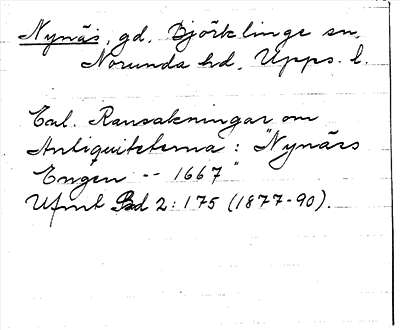 Nynäs, gd, Björklinge sn,
Norunda hd, Upps. l.
Enl. Ransakningar om
Antiquiteterna: "Nynäs
Engen -- 1667"
Ufmt Bd 2:175 (1877-90).